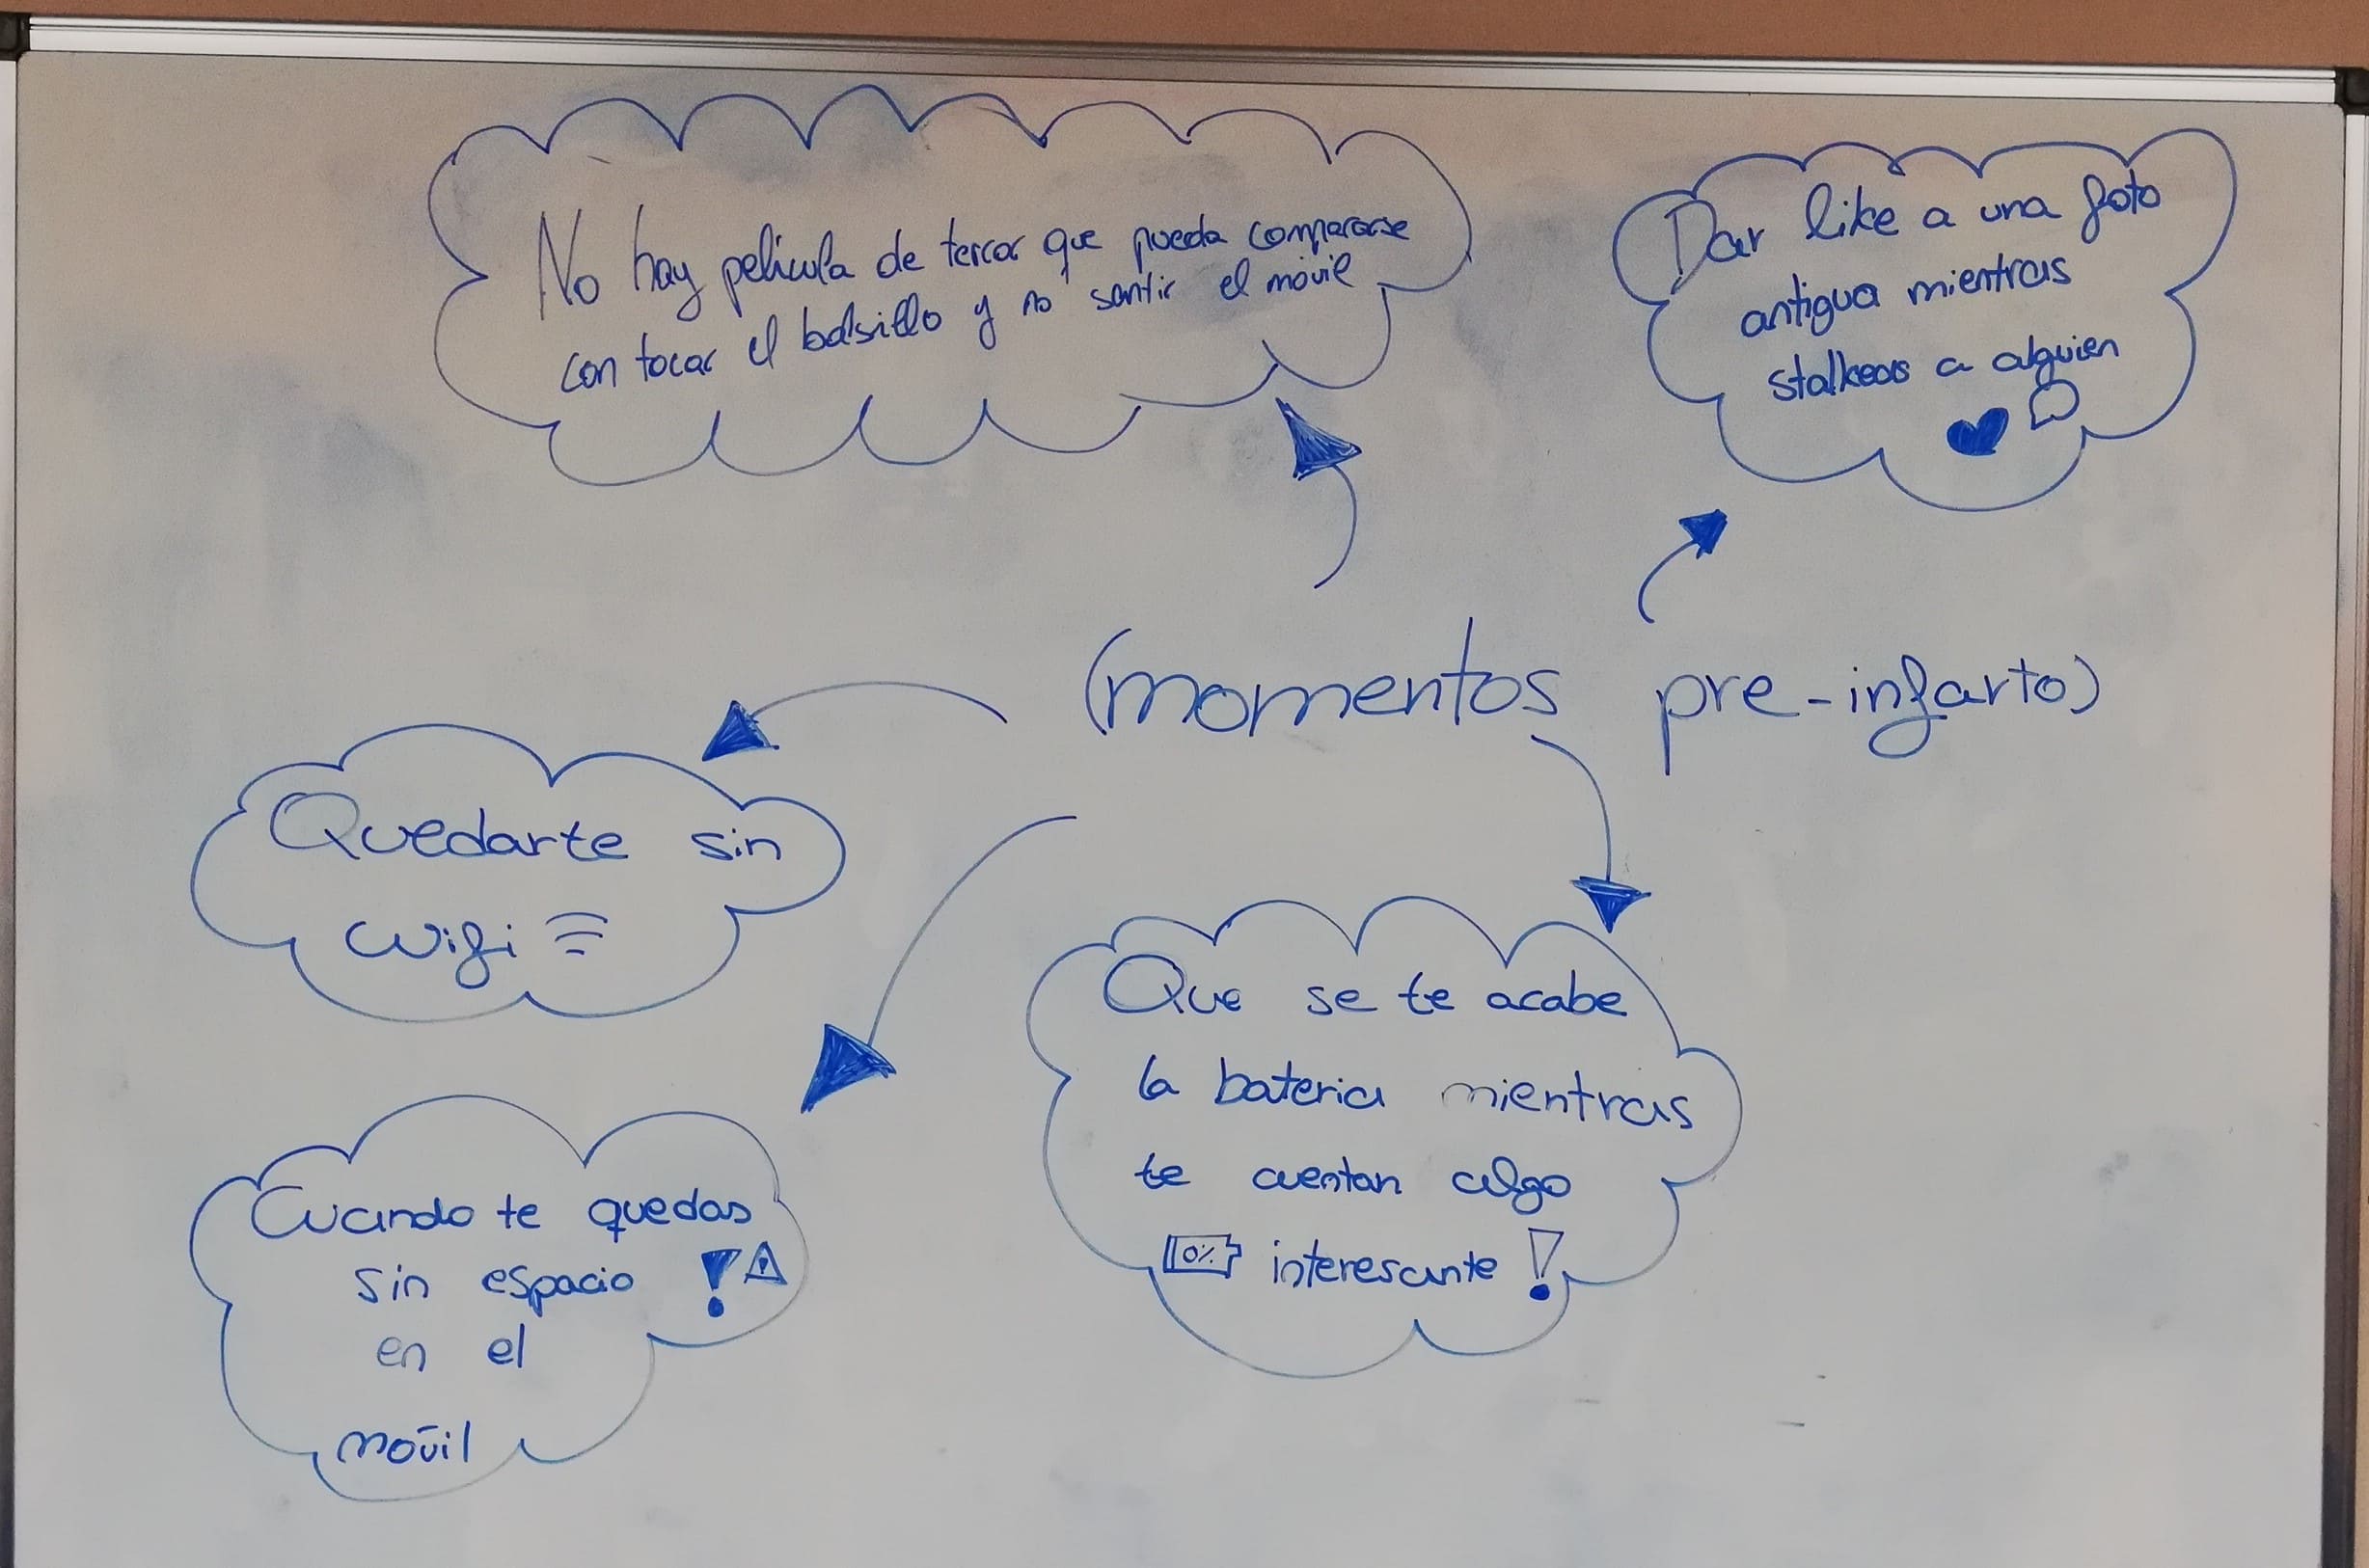 No hay película de terror que pueda compararse
con tocar el bolsillo y no sentir el móvil
Dar like a una foto
antigua mientras
stalkeas a alguien
(momentos pre-infarto)
Quedarte sin
wifi
Que se te acabe
la bateria mientras
te cuentan algo
0% interesante !
Cuando te quedas
sin espacio ! !
en el
móvil